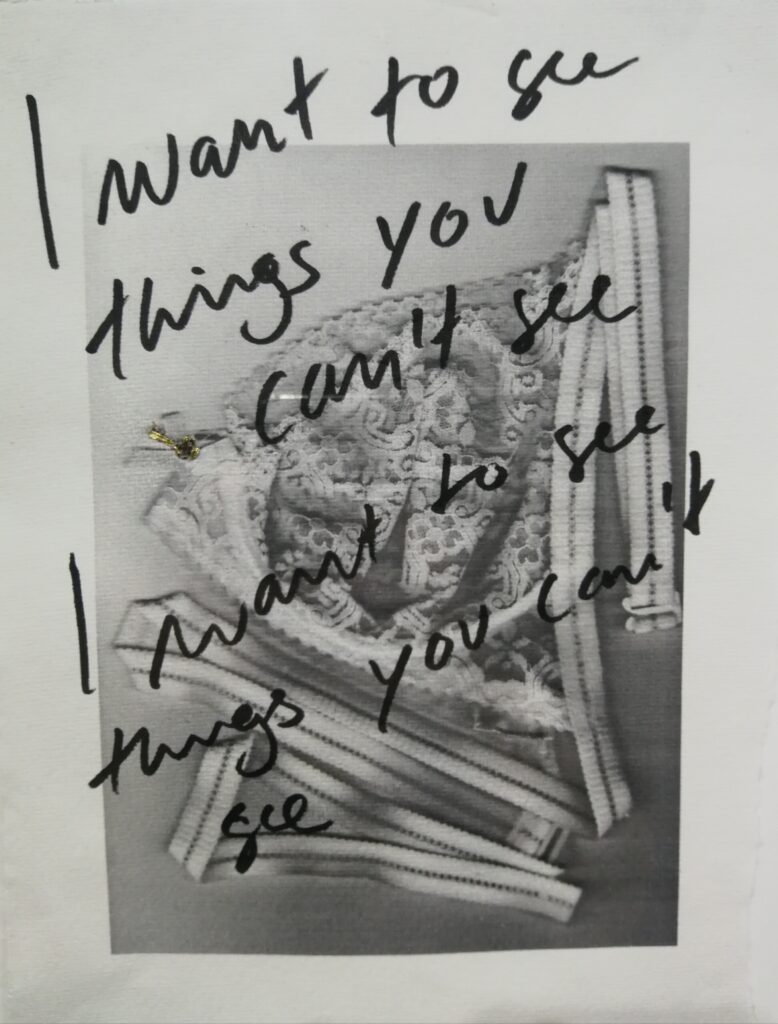 I want to see
things you
can't see
I want to see
things you can't
see